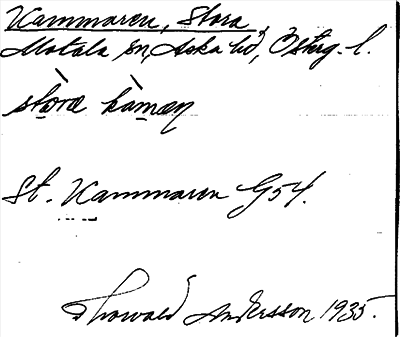 Kammaren, Stora
Motala sn, Aska hd, Östtg. l.
stòra kàmaṇ
St. Kammaren G54.
Thorvald Andersson 1935.